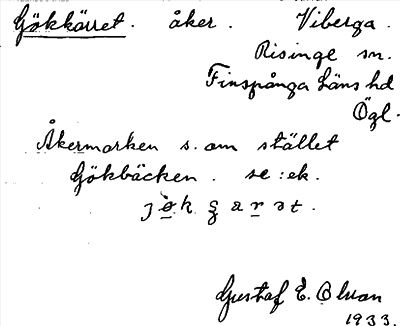 Gökkärret. åker. Viberga.
Risinge sn.
Finspånga läns hd
Ögl.
Åkermarken s. om stället
Gökbäcken. se: ek.
Gustaf E. Olson
1933.